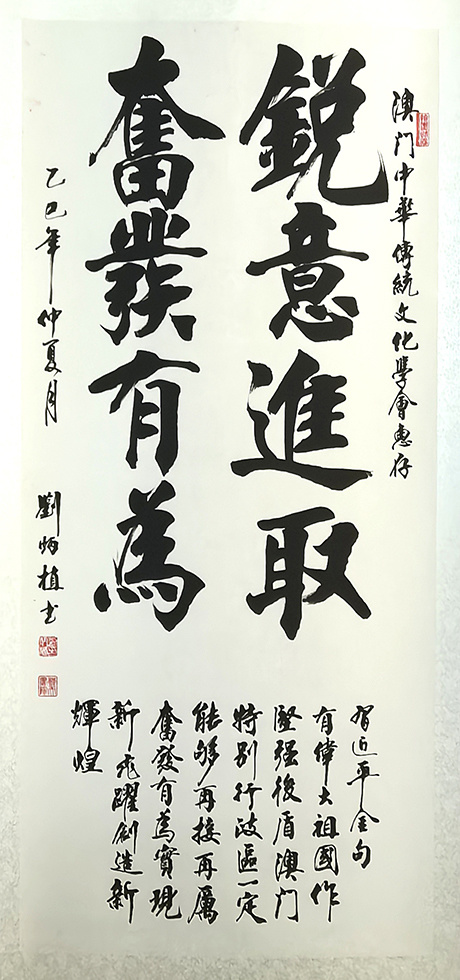 澳门中華傳統文化學會惠存
鋭意進取
奮發有為
乙巳年仲夏月
劉炳植书
習近平金句
有偉大祖國作
堅强後盾澳门
特别行政區一定
能够再接再厲
奮發有為實現
新飛躍創造新
輝煌